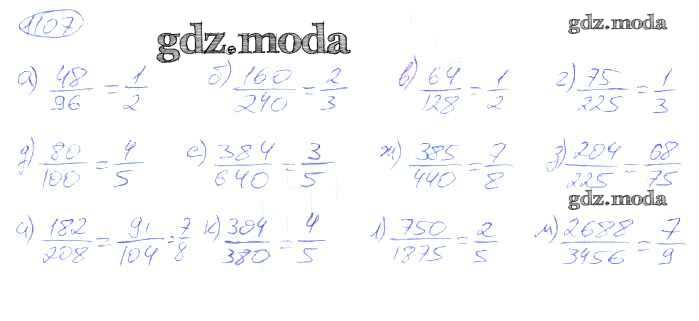 1107
gdz.moda
gdz.moda
а) 48/96 = 1/2 б) 160/240 = 2/3 в) 64/128 = 1/2 г) 75/225 = 1/3
д) 80/100 = 4/5 е) 384/640 = 3/5 ж) 385/440 = 7/8 з) 204/225 = 68/75
gdz.moda
и) 182/208 = 91/104 = 7/8 к) 304/380 = 4/5 л) 750/1875 = 2/5 м) 2688/3456 = 7/9